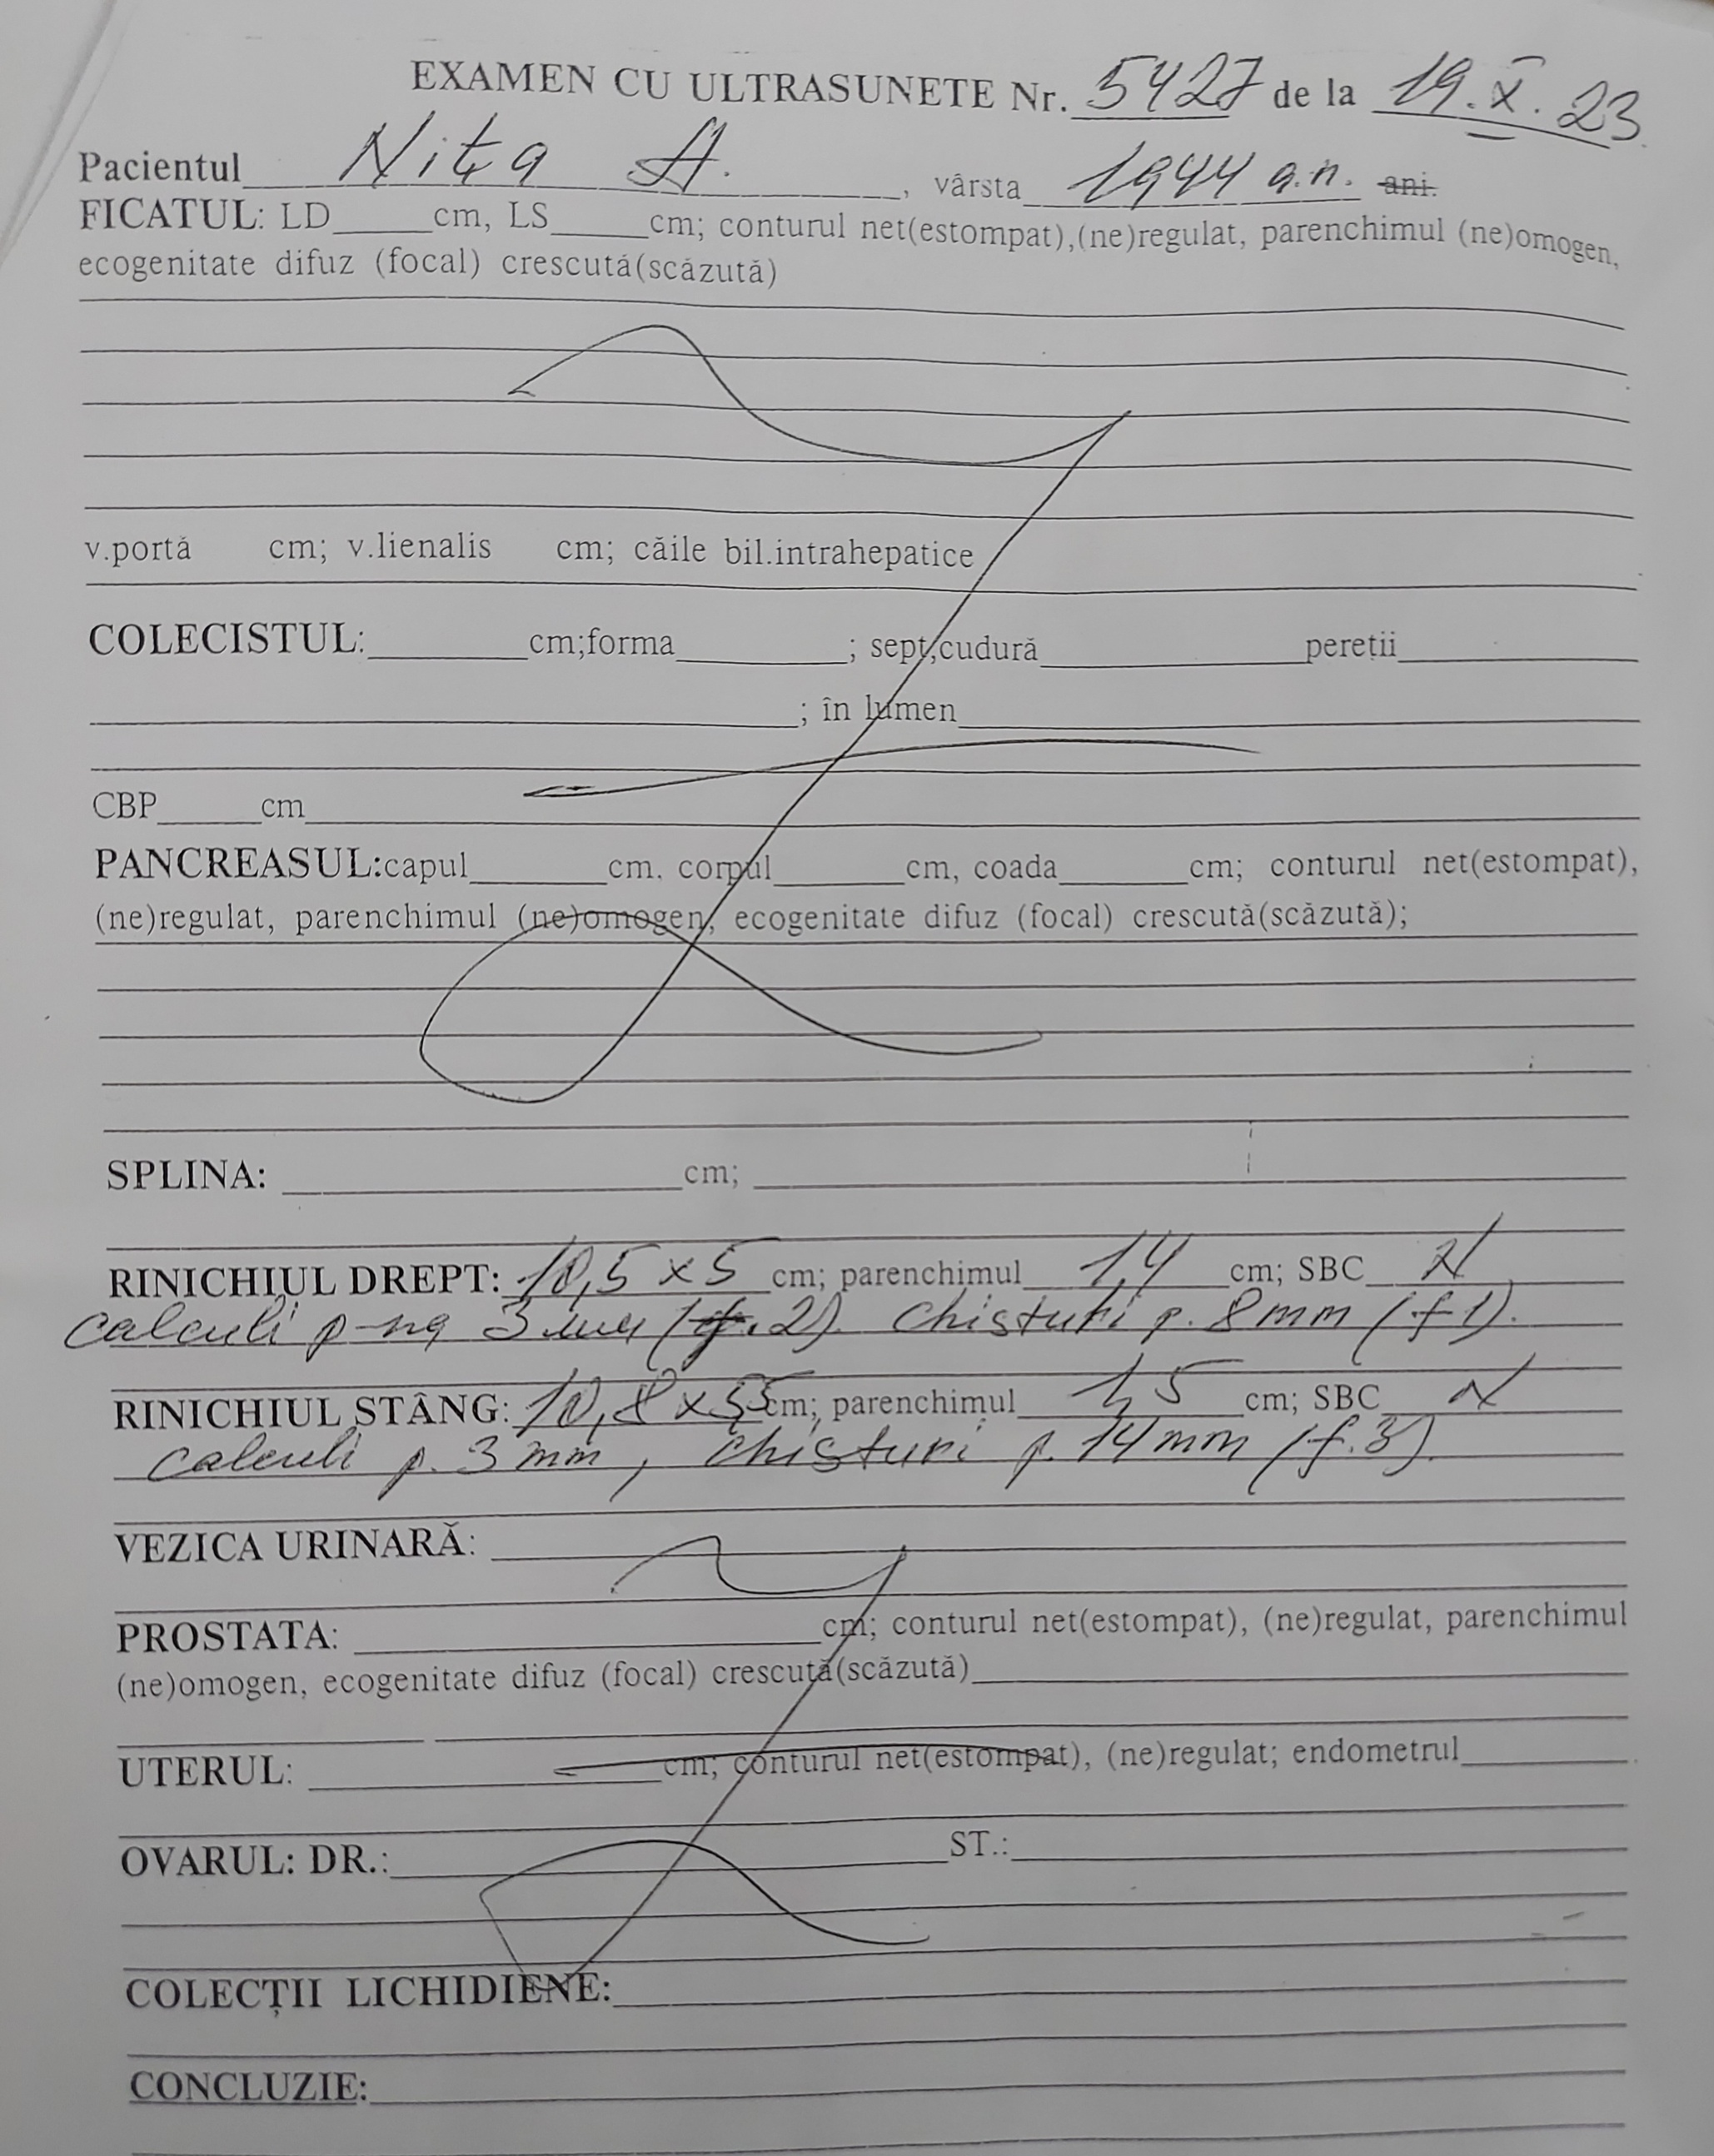 EXAMEN CU ULTRASUNETE Nr. 5427 de la 19.X.23
Pacientul Nița A., vârsta 1944 a.n. ani.
FICATUL: LD____cm, LS____cm; conturul net(estompat),(ne)regulat, parenchimul (ne)omogen,
ecogenitate difuz (focal) crescută(scăzută)
v.portă cm; v.lienalis cm; căile bil.intrahepatice
COLECISTUL:______cm;forma______; sept,cudură______pereții______
; în lumen
CBP____cm
PANCREASUL:capul______cm. corpul______cm, coada______cm; conturul net(estompat),
(ne)regulat, parenchimul (ne)omogen, ecogenitate difuz (focal) crescută(scăzută);
SPLINA: ______cm;
RINICHIUL DREPT: 10,5 x 5 cm; parenchimul 1,4 cm; SBC N
calculi p-na 3 mm (f. 2). Chisturi p. 8 mm (f 1).
RINICHIUL STÂNG: 10,8 x 5,5 cm; parenchimul 1,5 cm; SBC N
calculi p. 3 mm, chisturi p. 14 mm (f. 3).
VEZICA URINARĂ:
PROSTATA: ______cm; conturul net(estompat), (ne)regulat, parenchimul
(ne)omogen, ecogenitate difuz (focal) crescută(scăzută)
UTERUL: ______cm; conturul net(estompat), (ne)regulat; endometrul
OVARUL: DR.:______ST.:
COLECȚII LICHIDIENE:
CONCLUZIE: